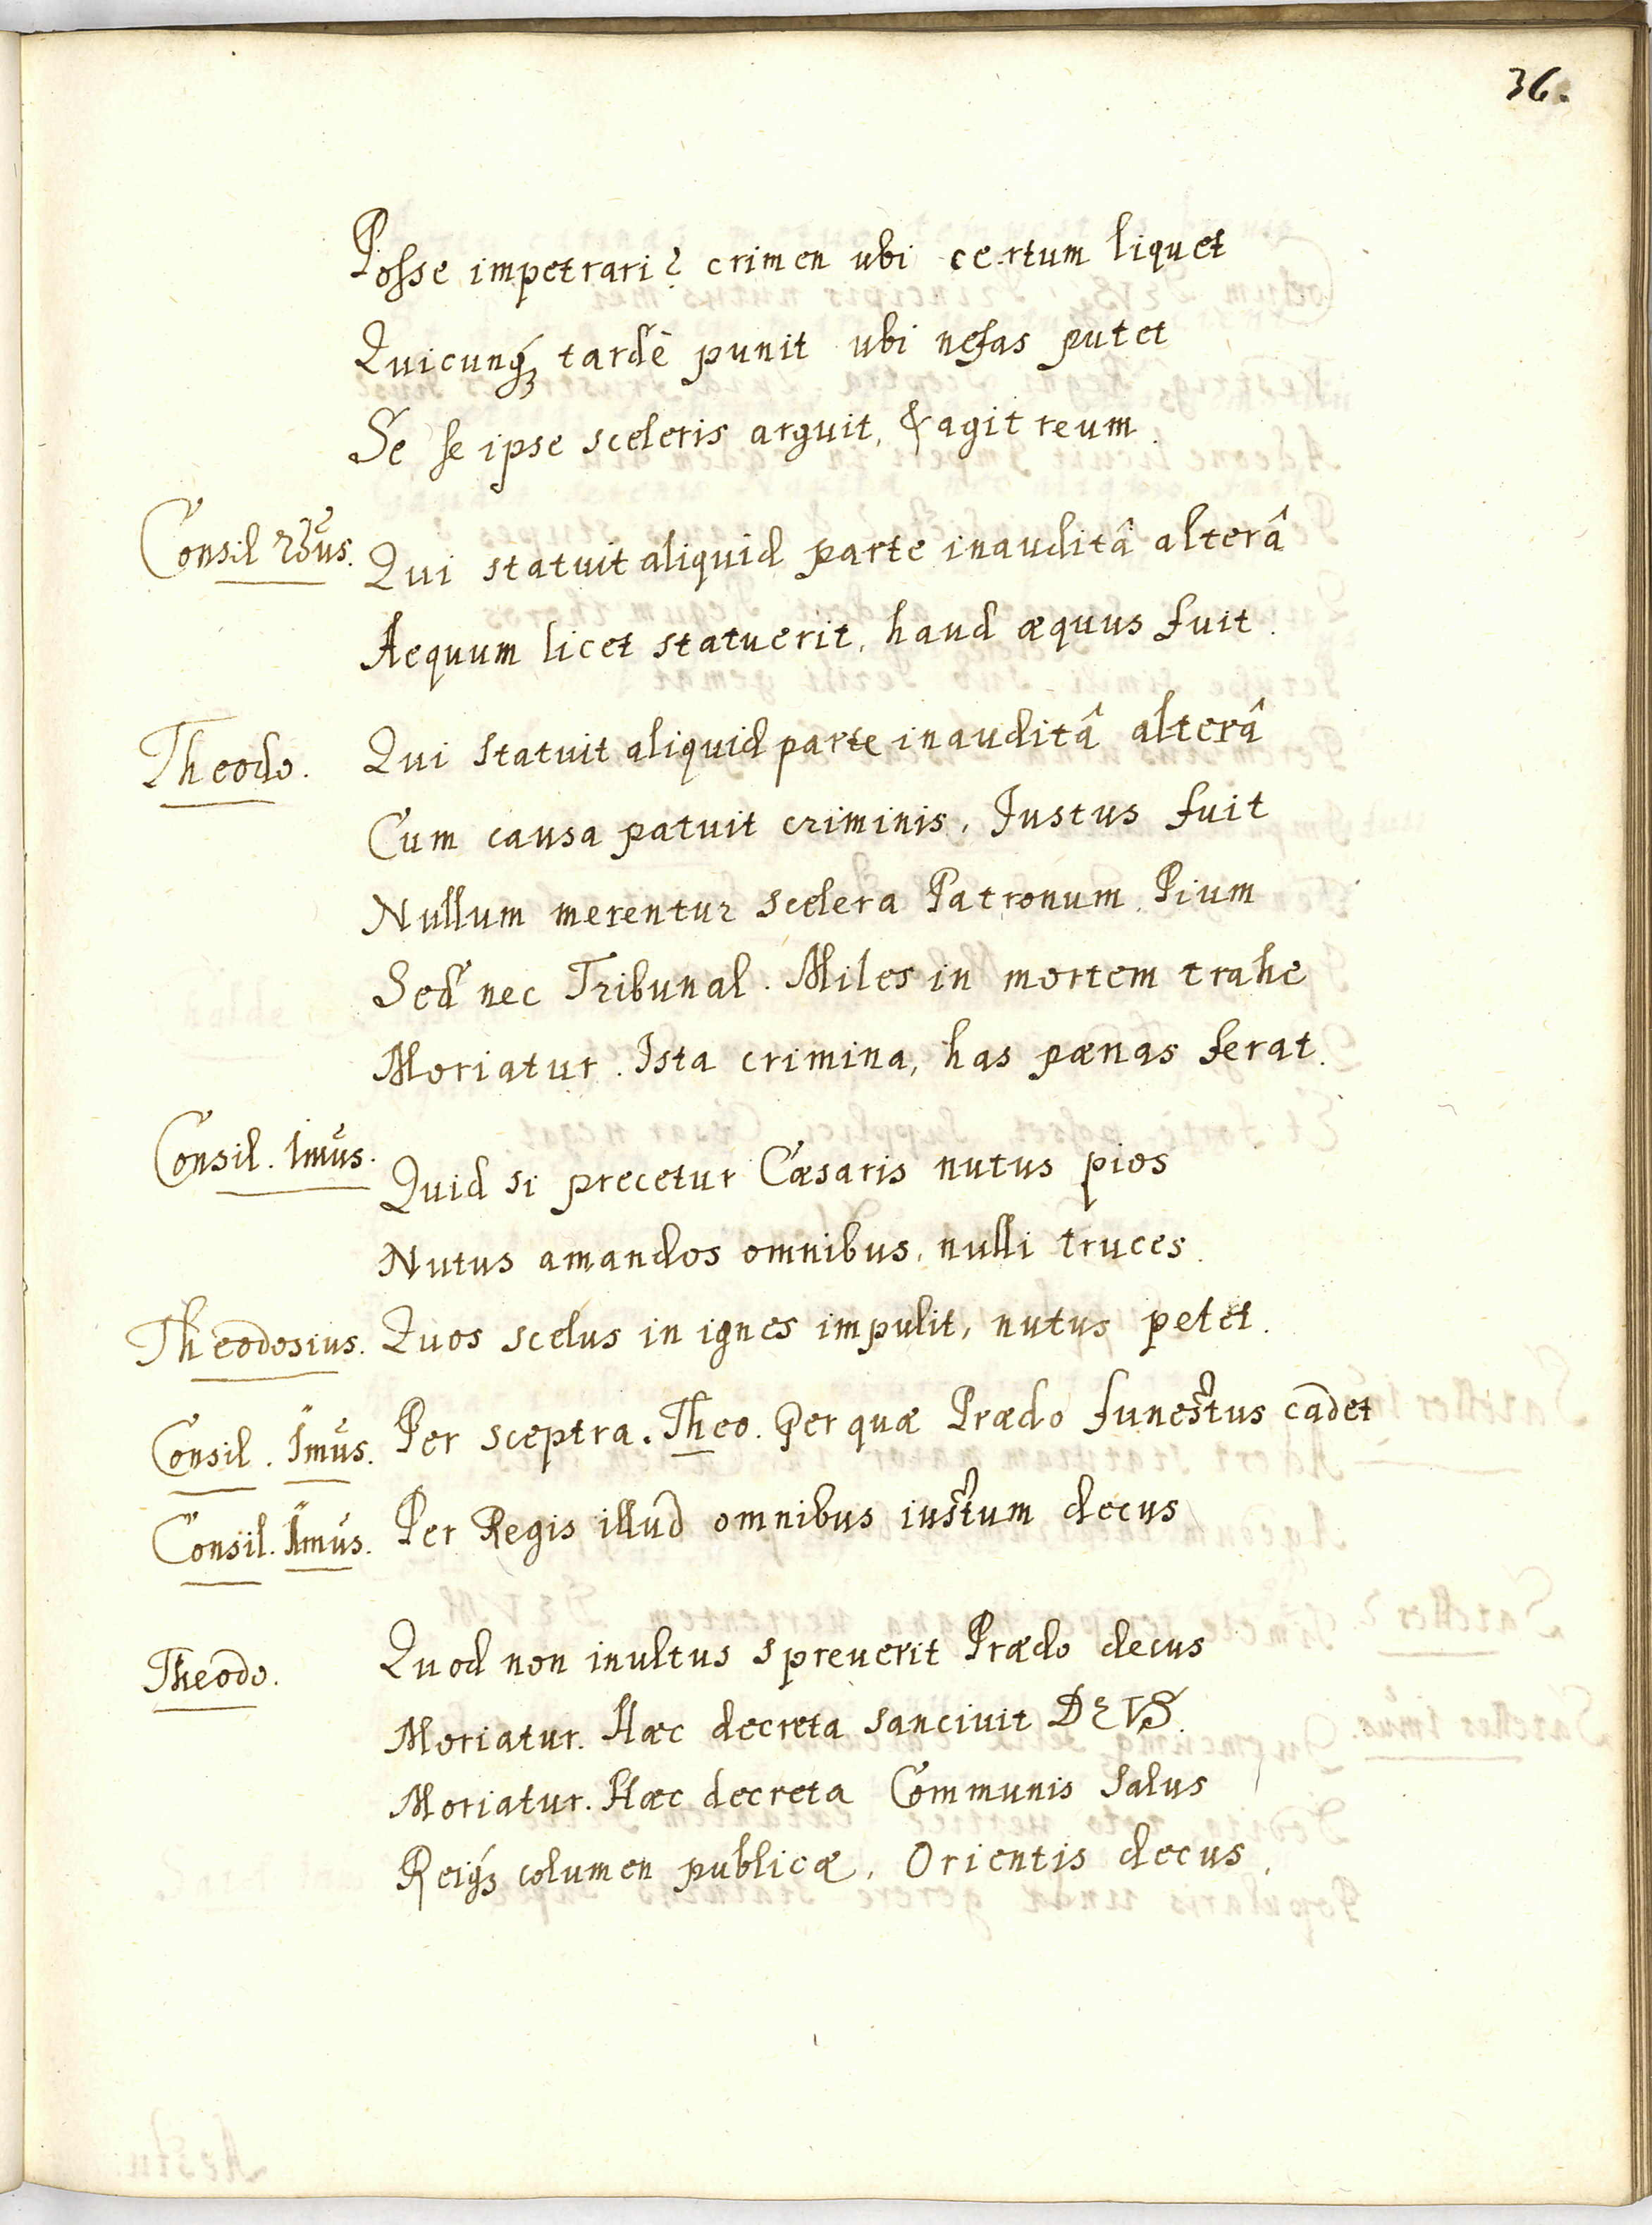 36.
Posse impetrari? crimen ubi certum liquet
Quicunq́; tardè punit ubi nefas putet
Se se ipse sceleris arguit, & agit reum.
Consil
Qui statuit aliquid parte inauditâ alterâ
Aequum licet statuerit, haud æquus fuit.
Theodo. Qui statuit aliquid parte inauditâ alterâ
Cum causa patuit criminis, Iustus fuit
Nullum merentur scelera Patronum Pium
Sed nec Tribunal. Miles in mortem trahe
Moriatur. Ista crimina, has pænas ferat.
Consil. Imus. Quid si precetur Cæsaris nutus pios
Nutus amandos omnibus, nulli truces.
Theodosius. Quos scelus in ignes impulit, nutus petet.
Consil. Imus. Per sceptra. Theo. Per quæ Prædo funestus cadet
Consil. Imus. Per Regis illud omnibus iustum decus
Theodo. Quod non inultus spreuerit Prædo decus
Moriatur. Hæc decreta sanciuit DEVS.
Moriatur. Hæc decreta Communis salus
Reiq́; columen publicæ, Orientis decus,